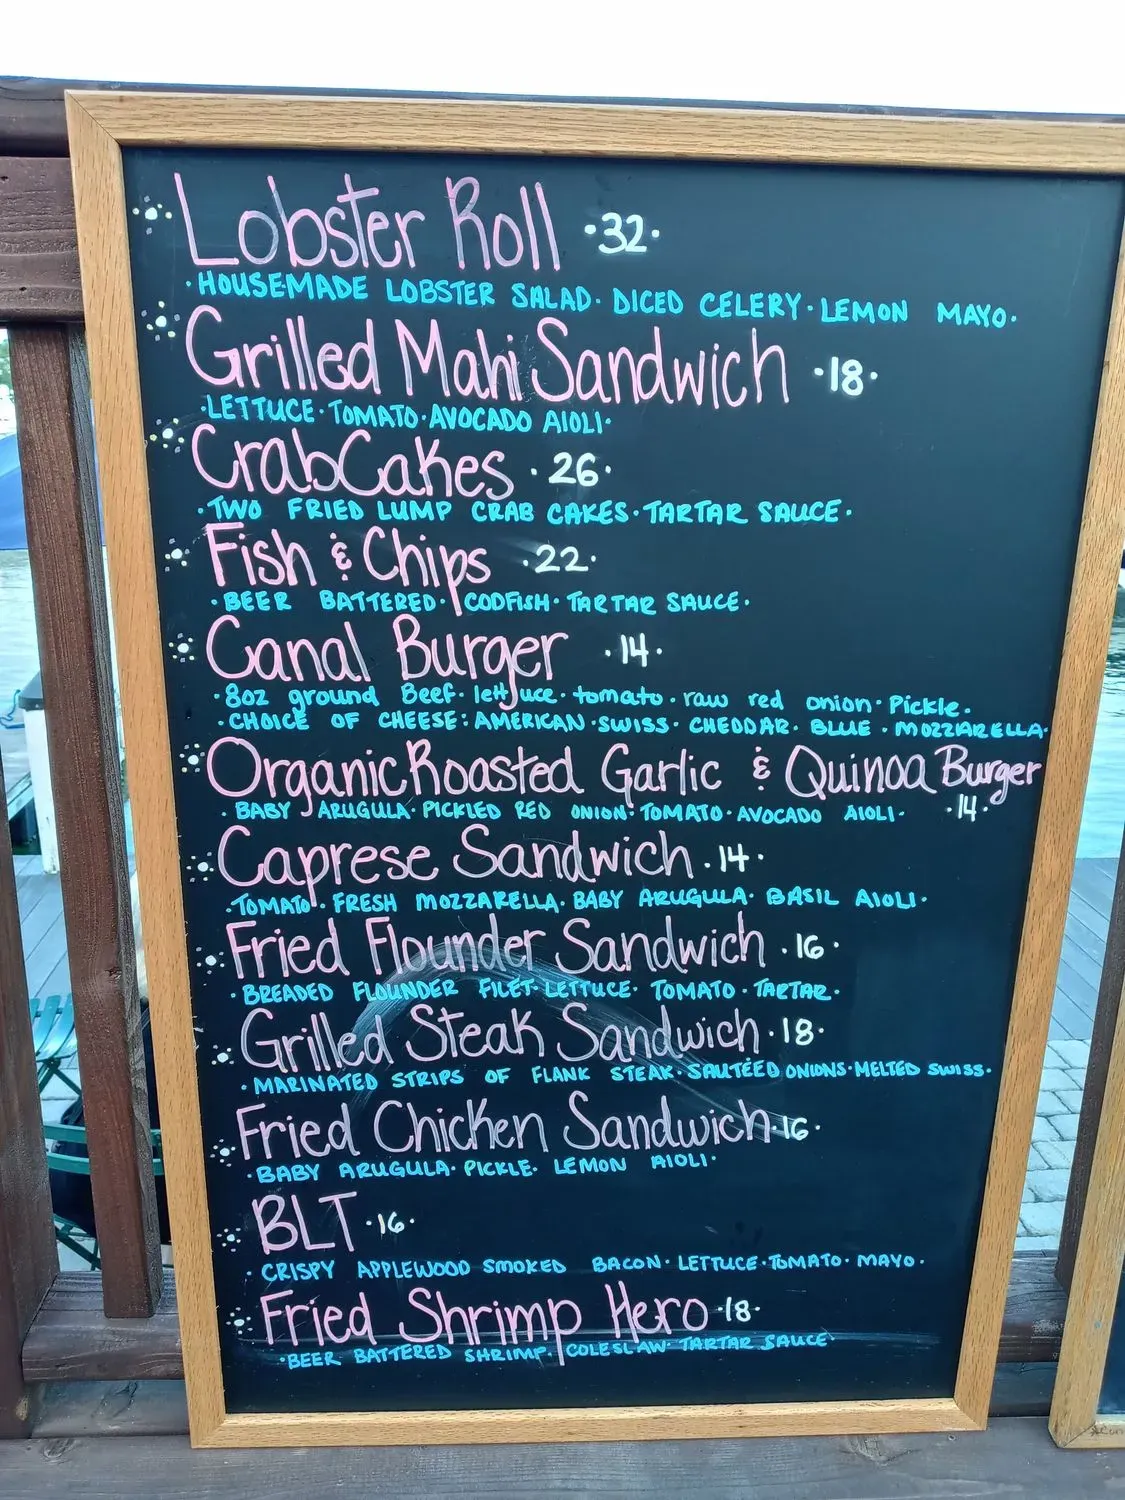 Lobster Roll ·32·
·HOUSEMADE LOBSTER SALAD· DICED CELERY·LEMON MAYO·
Grilled Mahi Sandwich ·18·
·LETTUCE·TOMATO·AVOCADO AIOLI·
CrabCakes ·26·
·TWO FRIED LUMP CRAB CAKES·TARTAR SAUCE·
Fish & Chips ·22·
·BEER BATTERED· CODFISH·TARTAR SAUCE·
Canal Burger ·14·
·8oz ground Beef·lettuce·tomato·raw red onion·Pickle·
·CHOICE OF CHEESE: AMERICAN·SWISS·CHEDDAR·BLUE·MOZZARELLA·
Organic Roasted Garlic & Quinoa Burger
·BABY ARUGULA·PICKLED RED ONION·TOMATO·AVOCADO AIOLI· ·14·
Caprese Sandwich ·14·
·TOMATO·FRESH MOZZARELLA·BABY ARUGULA·BASIL AIOLI·
Fried Flounder Sandwich ·16·
·BREADED FLOUNDER FILET·LETTUCE·TOMATO·TARTAR·
Grilled Steak Sandwich ·18·
·MARINATED STRIPS OF FLANK STEAK·SAUTÉED ONIONS·MELTED SWISS·
Fried Chicken Sandwich ·16·
·BABY ARUGULA·PICKLE·LEMON AIOLI·
BLT ·16·
·CRISPY APPLEWOOD SMOKED BACON·LETTUCE·TOMATO·MAYO·
Fried Shrimp Hero ·18·
·BEER BATTERED SHRIMP·COLESLAW·TARTAR SAUCE·